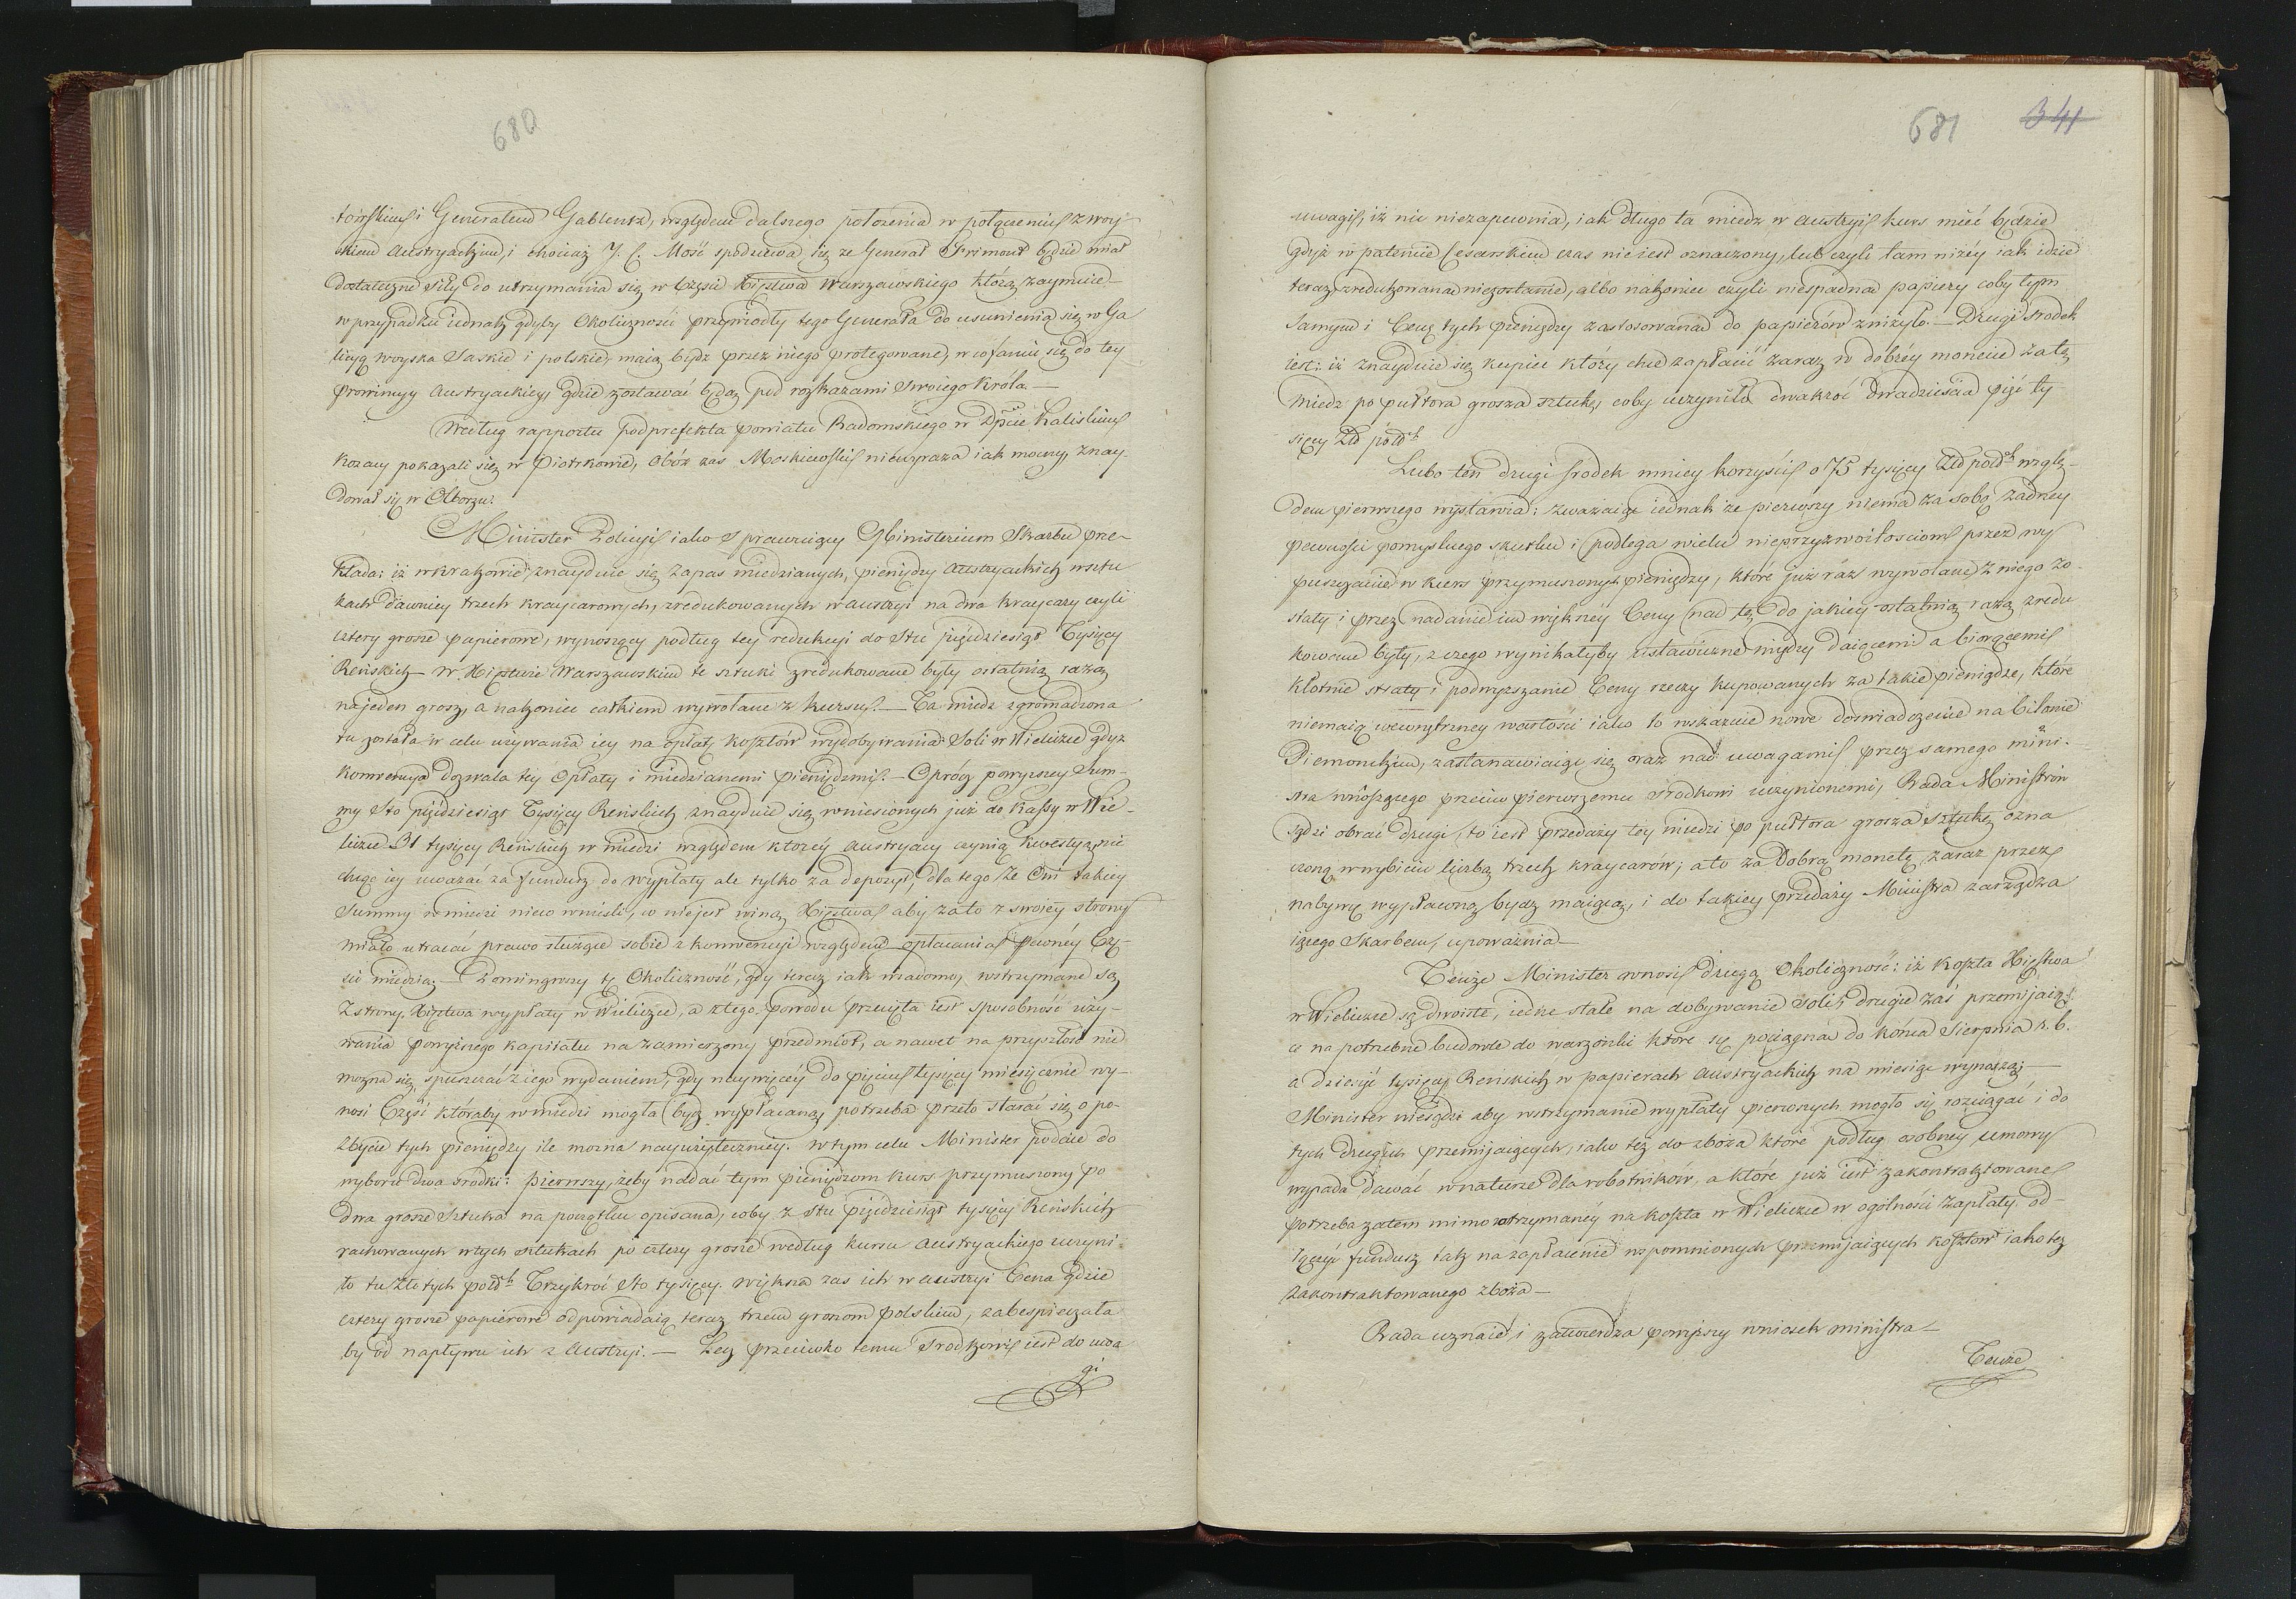 680
towskim i Generałem Gablentz, względem dalszego położenia w połączeniu z woy
skiem Austryackiem, i chociaż J. C. Mość spodziewa się że Generał Frimont będzie miał
dostateczne siły do utrzymania się w Części Xięstwa Warszawskiego którą zaymuie
w przypadku iednak gdyby Okoliczności przywiodły tego Generała do usunienia się w Ga
licyą woyska Saskie i polskie, maią bydź przez niego protegowane, w cofaniu się do tey
prowincyy Austryackiey, gdzie zostawać będą pod rozkazami Swoiego Króla. —
Według rapportu podprefekta powiatu Radomskiego w Dpcie Kaliskim
Kozacy pokazali się w Piotrkowie, Obóz zas Moskiewski niewyraża iak mocny, znay-
dował się w Olborzu.
Minister Policyi iako Sprawuiący Ministerium Skarbu prze-
kłada: iż w Krakowie znayduie się zapas miedzianych, pieniędzy Austryackich w sztu
kach dawniey trzech kraycarowych, zredukowanych w Austryi na dwa kraycary czyli
cztery grosze papierowe, wynoszący podług tey redukcyi do Stu pięćdziesiąt Tysięcy
Reńskich — W Xięstwie Warszawskim te sztuki zredukowane były ostatnią razą
na jeden grosz, a nakoniec całkiem wywołane z kursu. — Ta miedź zgromadzona
tu została w celu używania iey na opłatę kosztów wydobywania Soli w Wieliczce gdyż
konwencya dozwala tey Opłaty i miedzianemi pieniędzmi. — Oprócz powyższey Sum-
my Sto pięćdziesiąt Tysięcy Reńskich znayduie się wniesionych już do Kassy w Wie
liczce 31 tysięcy Reńskich w miedzi względem którey Austryacy czynią kwestyą, nie
chcąc iey uważać za fundusz do wypłaty ale tylko za depozyt, dla tego że Oni takiey
Summy w miedzi nie wnieśli, co niejest winą Xięstwa aby za to z swoiey strony
miało utracać prawo służące sobie z konwencyi względem opłacania pewney Czę-
ści miedzią. — Pominąwszy tę Okoliczność, gdy teraz iak wiadomo, wstrzymane są
z strony Xięstwa wypłaty w Wieliczce, a z tego powodu przecięta iest sposobność uży-
wania powyższego kapitału na zamierzony przedmiot, a nawet na przyszłość nie
można się spuszczać z iego wydaniem, gdy naywięcey do pięciu tysięcy miesięcznie wy-
nosi Część któraby w miedzi mogła bydź wypłacaną, potrzeba przeto starać się o po-
zbycie tych pieniędzy ile można nayużyteczniey. W tym celu Minister podaie do
wyboru dwa środki: pierwszy, żeby nadać tym pieniędzom kurs przymuszony po
dwa grosze Sztuka na początku opisana, coby z Stu pięćdziesiąt tysięcy Reńskich
rachowanych w tych sztukach po cztery grosze według kursu Austryackiego uczyni-
ło tu złotych polsh Trzykroć Sto tysięcy. Większa zas ich w Austryi Cena gdzie
cztery grosze papierowe odpowiadaią teraz trzem groszom polskim, zabespieczała
by od napływu ich z Austryi. — Lecz przeciwko temu Środkowi iest do uwa
gi
681 341
uwagi, iż nic niezapewnia, iak długo ta miedź w Austryi kurs mieć będzie
gdyż w patencie Cesarskiem czas nie iest oznaczony, lub czyli tam niżéy iak idzie
teraz zredukowaną niezostanie, albo nakoniec czyli niespadną papiery coby tym
samym i Cenę tych pieniędzy zastosowaną do papierów zniżyło. — Drugi środek
iest: iż znayduie się kupiec który chce zapłacić zaraz w dobréy monecie za tę
miedź po pułtora grosza sztukę, coby uczyniło dwakroć dwadzieścia pięć ty
sięcy Złł polsh
Lubo ten drugi środek mniey korzyści o 75 tysięcy Złł polsh wzglę-
dem pierwszego wystawia: zważaiąc iednak że pierwszy niema za sobą żadney
pewności pomyślnego skutku i podlega wielu nieprzyzwoitościom przez wy
puszczenie w kurs przymuszonych pieniędzy, które już raz wywołane z niego zo-
stały i przez nadanie im większey Ceny nad tę do jakiey ostatnią razą zredu
kowane były, z czego wynikałyby ustawiczne między daiącemi a biorącemi
kłótnie straty i podwyższanie Ceny rzeczy kupowanych za takie pieniądze, które
niemaią wewnętrzney wartości iako to wskazuie nowe doświadczenie na bilonie
Piemonckim, zastanawiaiąc się oraz nad uwagami przez samego mini-
stra wnoszącego przeciw pierwszemu środkowi uczynionemi, Rada Ministrów
sądzi obrać drugi, to iest przedaży téy miedzi po pułtora grosza Sztukę ozna
czoną w wybiciu liczbą trzech kraycarów; a to za dobrą monetę zaraz przez
nabywcę wypłaconą bydź maiącą, i do takiey przedaży Ministra zarządza
iącego Skarbem, upoważnia —
Tenże Minister wnosi drugą Okoliczność: iż koszta Xięstwa
w Wieliczce są dwoiste, iedne stałe na dobywanie soli, drugie zaś przemijaią-
ce na potrzebne budowle do warzonki które się pociągną do końca Sierpnia r. b.
a dziesięć tysięcy Reńskich w papierach Austryackich na miesiąc wynoszą; —
Minister niesądzi aby wstrzymanie wypłaty pierwszych mogło się rozciągać i do
tych drugich przemijaiących, iako też do zboża które podług osobney umowy
wypada dawać w naturze dla robotników, a które już iest zakontraktowane
potrzeba zatem mimo wstrzymanéy na koszta w Wieliczce w ogólności zapłaty, od-
łączyć fundusz tak na zapłacenie wspomnionych przemijaiących kosztów iako też
zakontraktowanego zboża —
Rada uznaie i zatwierdza powyższy wniosek ministra —
Tenże